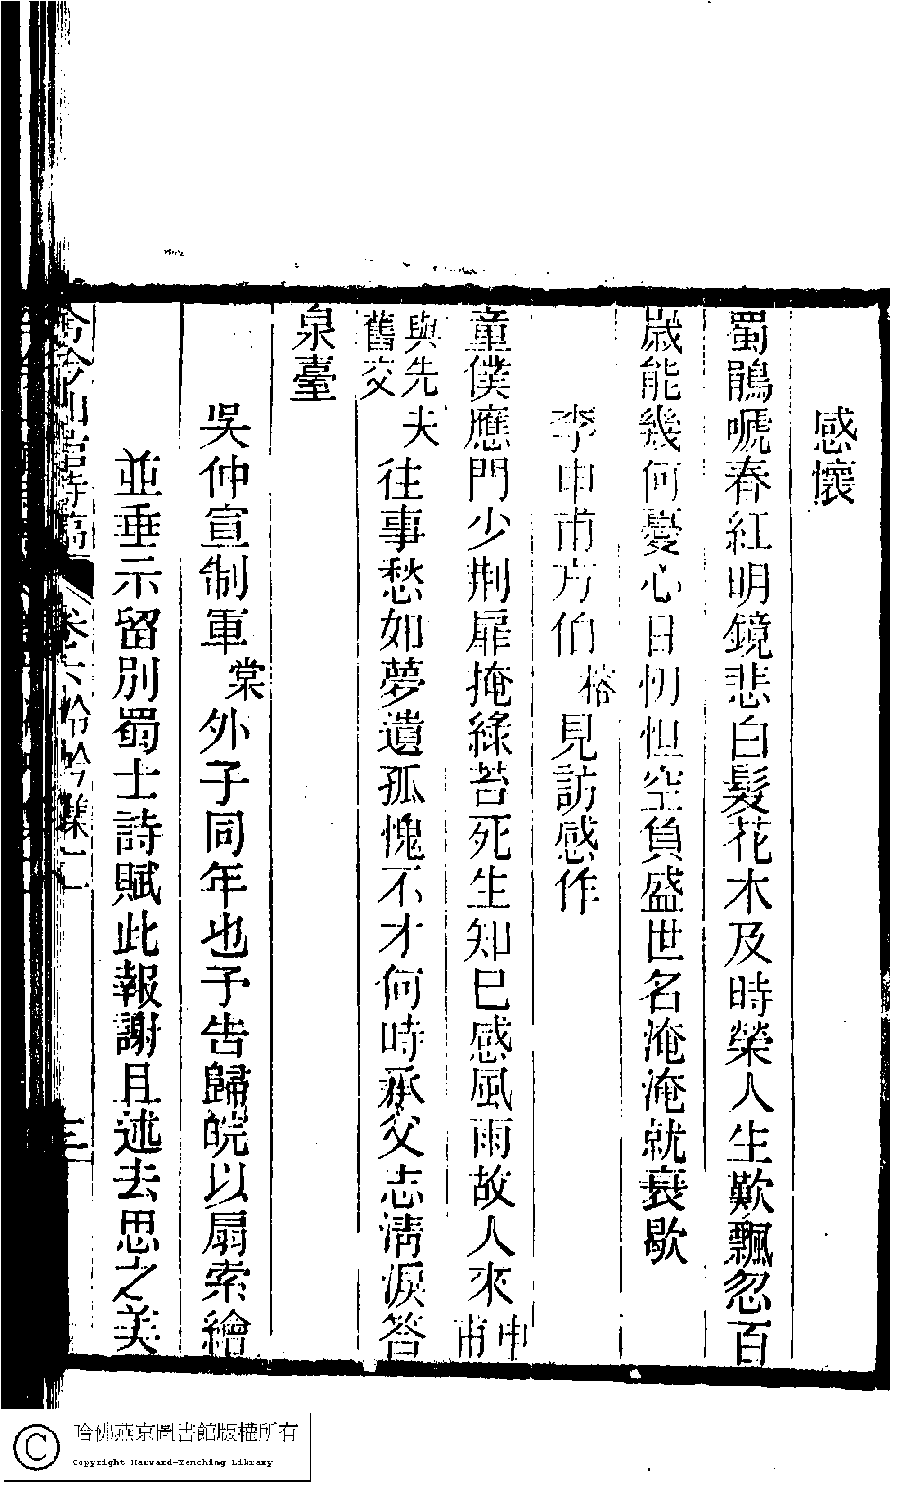 感懷
蜀鵑嗁春紅明鏡悲白髮花木及時榮人生歎飄忽百
歲能幾何憂心日忉怛空負盛世名淹淹就衰歇
李申甫方伯榕見訪感作
童僕應門少荆扉掩綠苔死生知己感風雨故人來申甫
與先夫舊交往事愁如夢遺孤愧不才何時承父志淸淚答
泉臺
吳仲宣制軍棠外子同年也予告歸皖以扇索繪
並垂示留別蜀士詩賦此報謝且述去思之美
吟詩稿 卷六 三
哈佛燕京圖書館版權所有
Copyright Harvard-Yenching Library